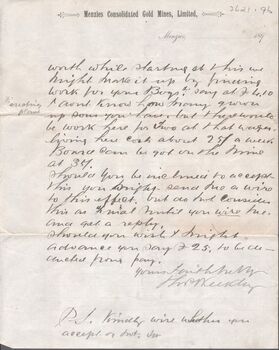 3621.96
Menzies Consolidated Gold Mines, Limited,
Menzies, 189
worth while starting at this we
might make it up by finding
work for your Boys say at £4.10
I dont know how many grown
up sons you have, but there would
be work here for two at that wages.
living here costs about 25/- a week
Board can be got on the mine
at 27/.
Should you be inclined to accept
this you might send me a wire
to this effect, but do not consider
this as final until you wire me
and get a reply.
Should you wish I might
advance you say £25, to be de-
ducted from pay.
Yours faithfully
P.S. Kindly wire whether you
accept or not.